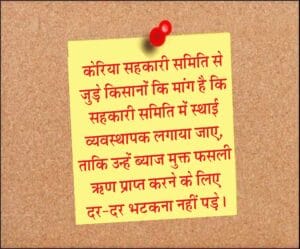 केरिया सहकारी समिति से
जुड़े किसानों कि मांग है कि
सहकारी समिति में स्थाई
व्यवस्थापक लगाया जाए,
ताकि उन्हें ब्याज मुक्त फसली
ऋण प्राप्त करने के लिए
दर-दर भटकना नहीं पड़े।